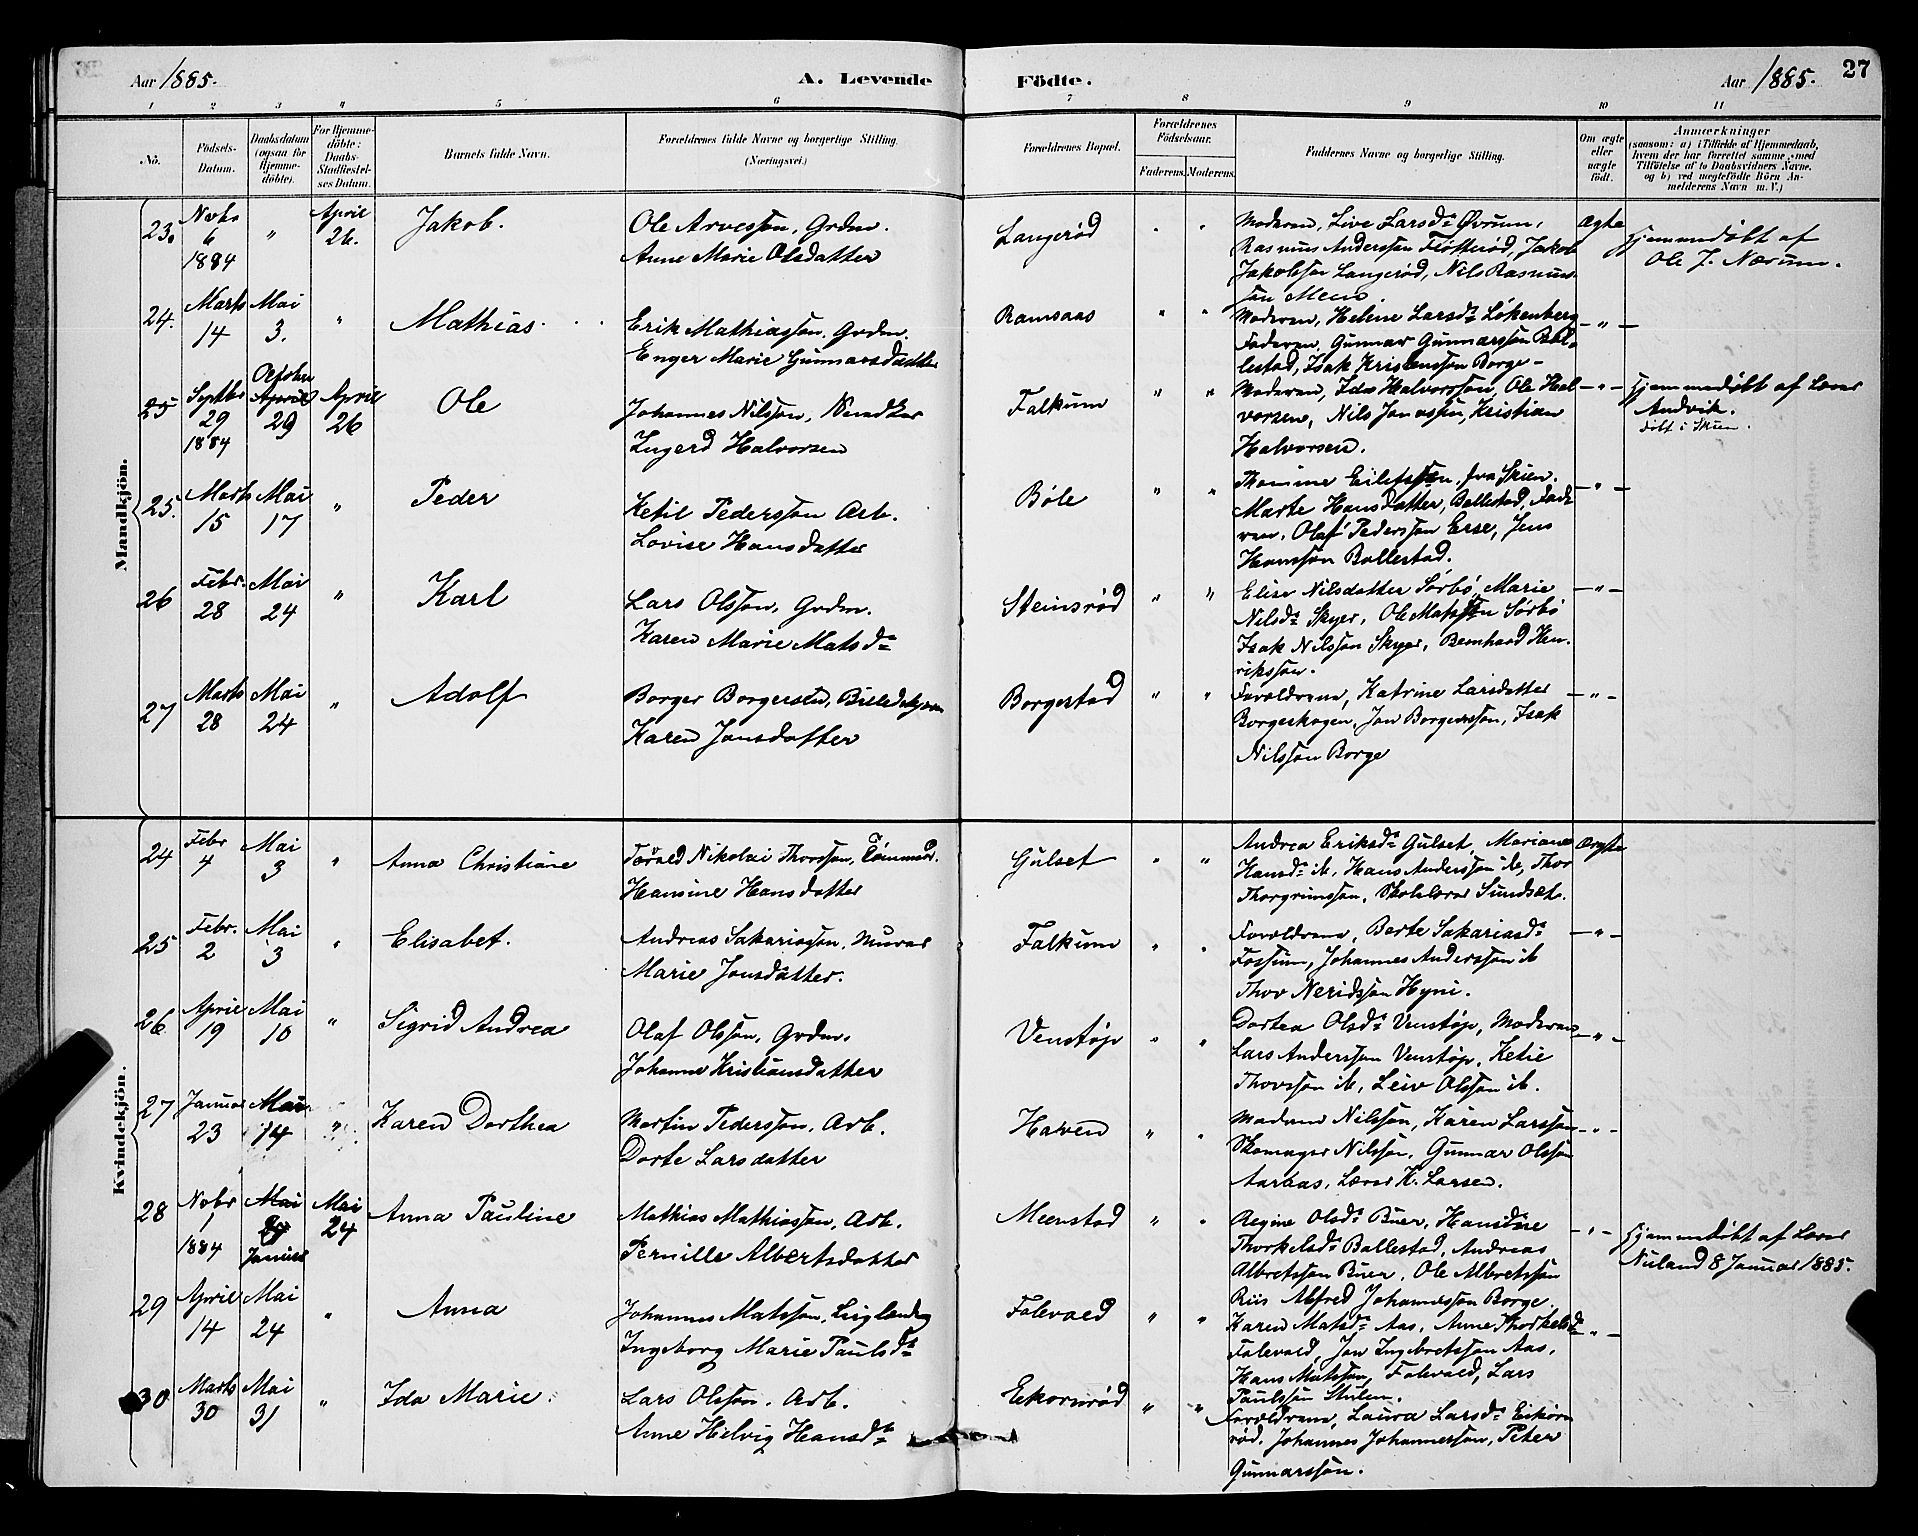 Aar 1885. A. Levende Födte. Aar 1885. 27
1 2 3 4 5 6 7 8 9 10 11
No. Födsels-Datum. Daabsdatum (ogsaa for Hjemme-döbte). For Hjemme-döbte: Daabs-Stadfæstel-ses Datum. Barnets fulde Navn. Forældrenes fulde Navne og borgerlige Stilling. (Næringsvei.) Forældrenes Bopæl. Forældrenes Födselsaar. Faderens. Moderens. Faddernes Navne og borgerlige Stilling. Om ægte eller uægte født. Anmærkninger
(saasom: a) i Tilfælde af Hjemmedaab, hvem der har forrettet samme, med Tilföielse af to Daabsvidners Navne, og b) ved uægtefödte Börn An-melderens Navn m. V.)
Mandkjön.
23. Novbr 6 1884 " April 26. Jakob. Ole Arvesson, Grdm.
Anne Marie Olsdatter
Langerød " " Moderen, Live Larsdr Øvrum, Ægte
Rasmus Anderssen Fløtterød, Jakob
Jakobsson Langerød, Nils Rasmus-
son Mens
Hjemmedøbt af
Ole J. Nærum.
24. Marts 14 Mai 3. " Mathias. Erik Mathiasson, Grdm.
Enger Marie Gunnarsdatter
Ramsaas " " Moderen, Helene Larsdr Løkenberg - " -
Faderen, Gunnar Gunnarsson Bal-
lestad, Isak Kristensson Borge -
25 Septbr 29 1884 Oktober April 29 April 26 Ole Johannes Nilsson,
Ingerd Halvorsen
Falkum " " Moderen, Ida Halvorsson, Ole Hal- - " -
vorsen, Nils Jonassen, Kristian
Halvorsen.
Hjemmedøbt af Lærer
Andvik.
døbt i Skien.
25. Marts 15 Mai 17 " Peder Ketil Pedersson Arb.
Lovise Hansdatter
Bøle " " Thomine Eilefssen, fra Skien. - " -
Marte Hansdatter, Ballestad, Fade-
ren, Olaf Pedersson Erse, Jens
Hansson Ballestad.
26 Febr. 28 Mai 24 " Karl Lars Olsson, Grdm.
Karen Marie Matsdr
Steinsrød " " Elise Nilsdatter Sørbø, Marie - " -
Nilsdr Skyer, Ole Matssen Sørbø
Isak Nilsson Skyer, Bernhard Hen-
riksson.
27 Marts 28 Mai 24 " Adolf Borger Borgersen,
Karen Jonsdatter
Borgestad " " Forældrene, Katrine Larsdatter - " -
Borgeskogen, Jon Borgersson, Isak
Nilsson Borge
Kvindekjön.
24 Febr 4 Mai 3 " Anna Christiane Torald Nikolai Thorsson, Tømmerm.
Hansine Hansdatter
Gulset " " Andrea Eriksdr Gulset, Mariane Ægte
Hansdr ib, Hans Andersson ib, Thor
Thorgrimsson, Skolelærer Sundset.
25 Febr. 2 Mai 3 " Elisabet. Andreas Sakariasson, Murer
Marie Jonsdatter.
Falkum " " Forældrene, Berte Sakariasdr - " -
Fossum, Johannes Andersson ib
Thov Neridsson Hyni.
26 April 19 Mai 10 " Sigrid Andrea Olaf Olsson, Grdm.
Johanne Kristiansdatter
Venstøp " " Dortea Olsdr Venstøp, Moderen - " -
Lars Andersson Venstøp, Ketil
Thovsson ib, Leiv Olsson ib.
27 Januar 23 Mai 14 " Karen Dorthea Martin Pedersson, Arb.
Dorte Larsdatter
Haven " " Madame Nilsson, Karen Larsson - " -
Skomager Nilsson, Gunnar Olsson
Aaraas, Lærer K. Larsen.
28 Nobr 1 1884 Mai 24 Januar Mai 24 Anna Pauline Mathias Mathiasson, Arb.
Pernille Albertsdatter
Meenstad " " Regine Olsdr Buer, Hansine - " -
Thorkelsdr Ballestad, Andreas
Albretsson Buer, Ole Albretsson
Riis Alfred Johannesson Borge.
Hjemmedøbt af Lærer
Nuland 8 Januar 1885.
29 April 14 Mai 24 " Anna Johannes Matsson,
Ingeborg Marie Paulsdr
Folevald " " Karen Matsdr Aas, Anne Thorkelsdr - " -
Folevald, Jon Ingebretsson Aas,
Hans Matsson, Folevald, Lars
Paulsson Stulen.
30 Marts 30 Mai 31 " Ida Marie. Lars Olsson, Arb.
Anne Helvig Hansdr
Ekornrød " " Forældrene, Laura Larsdr Eikorn
rød. Johannes Johannesson, Peter
Gunnarsson.